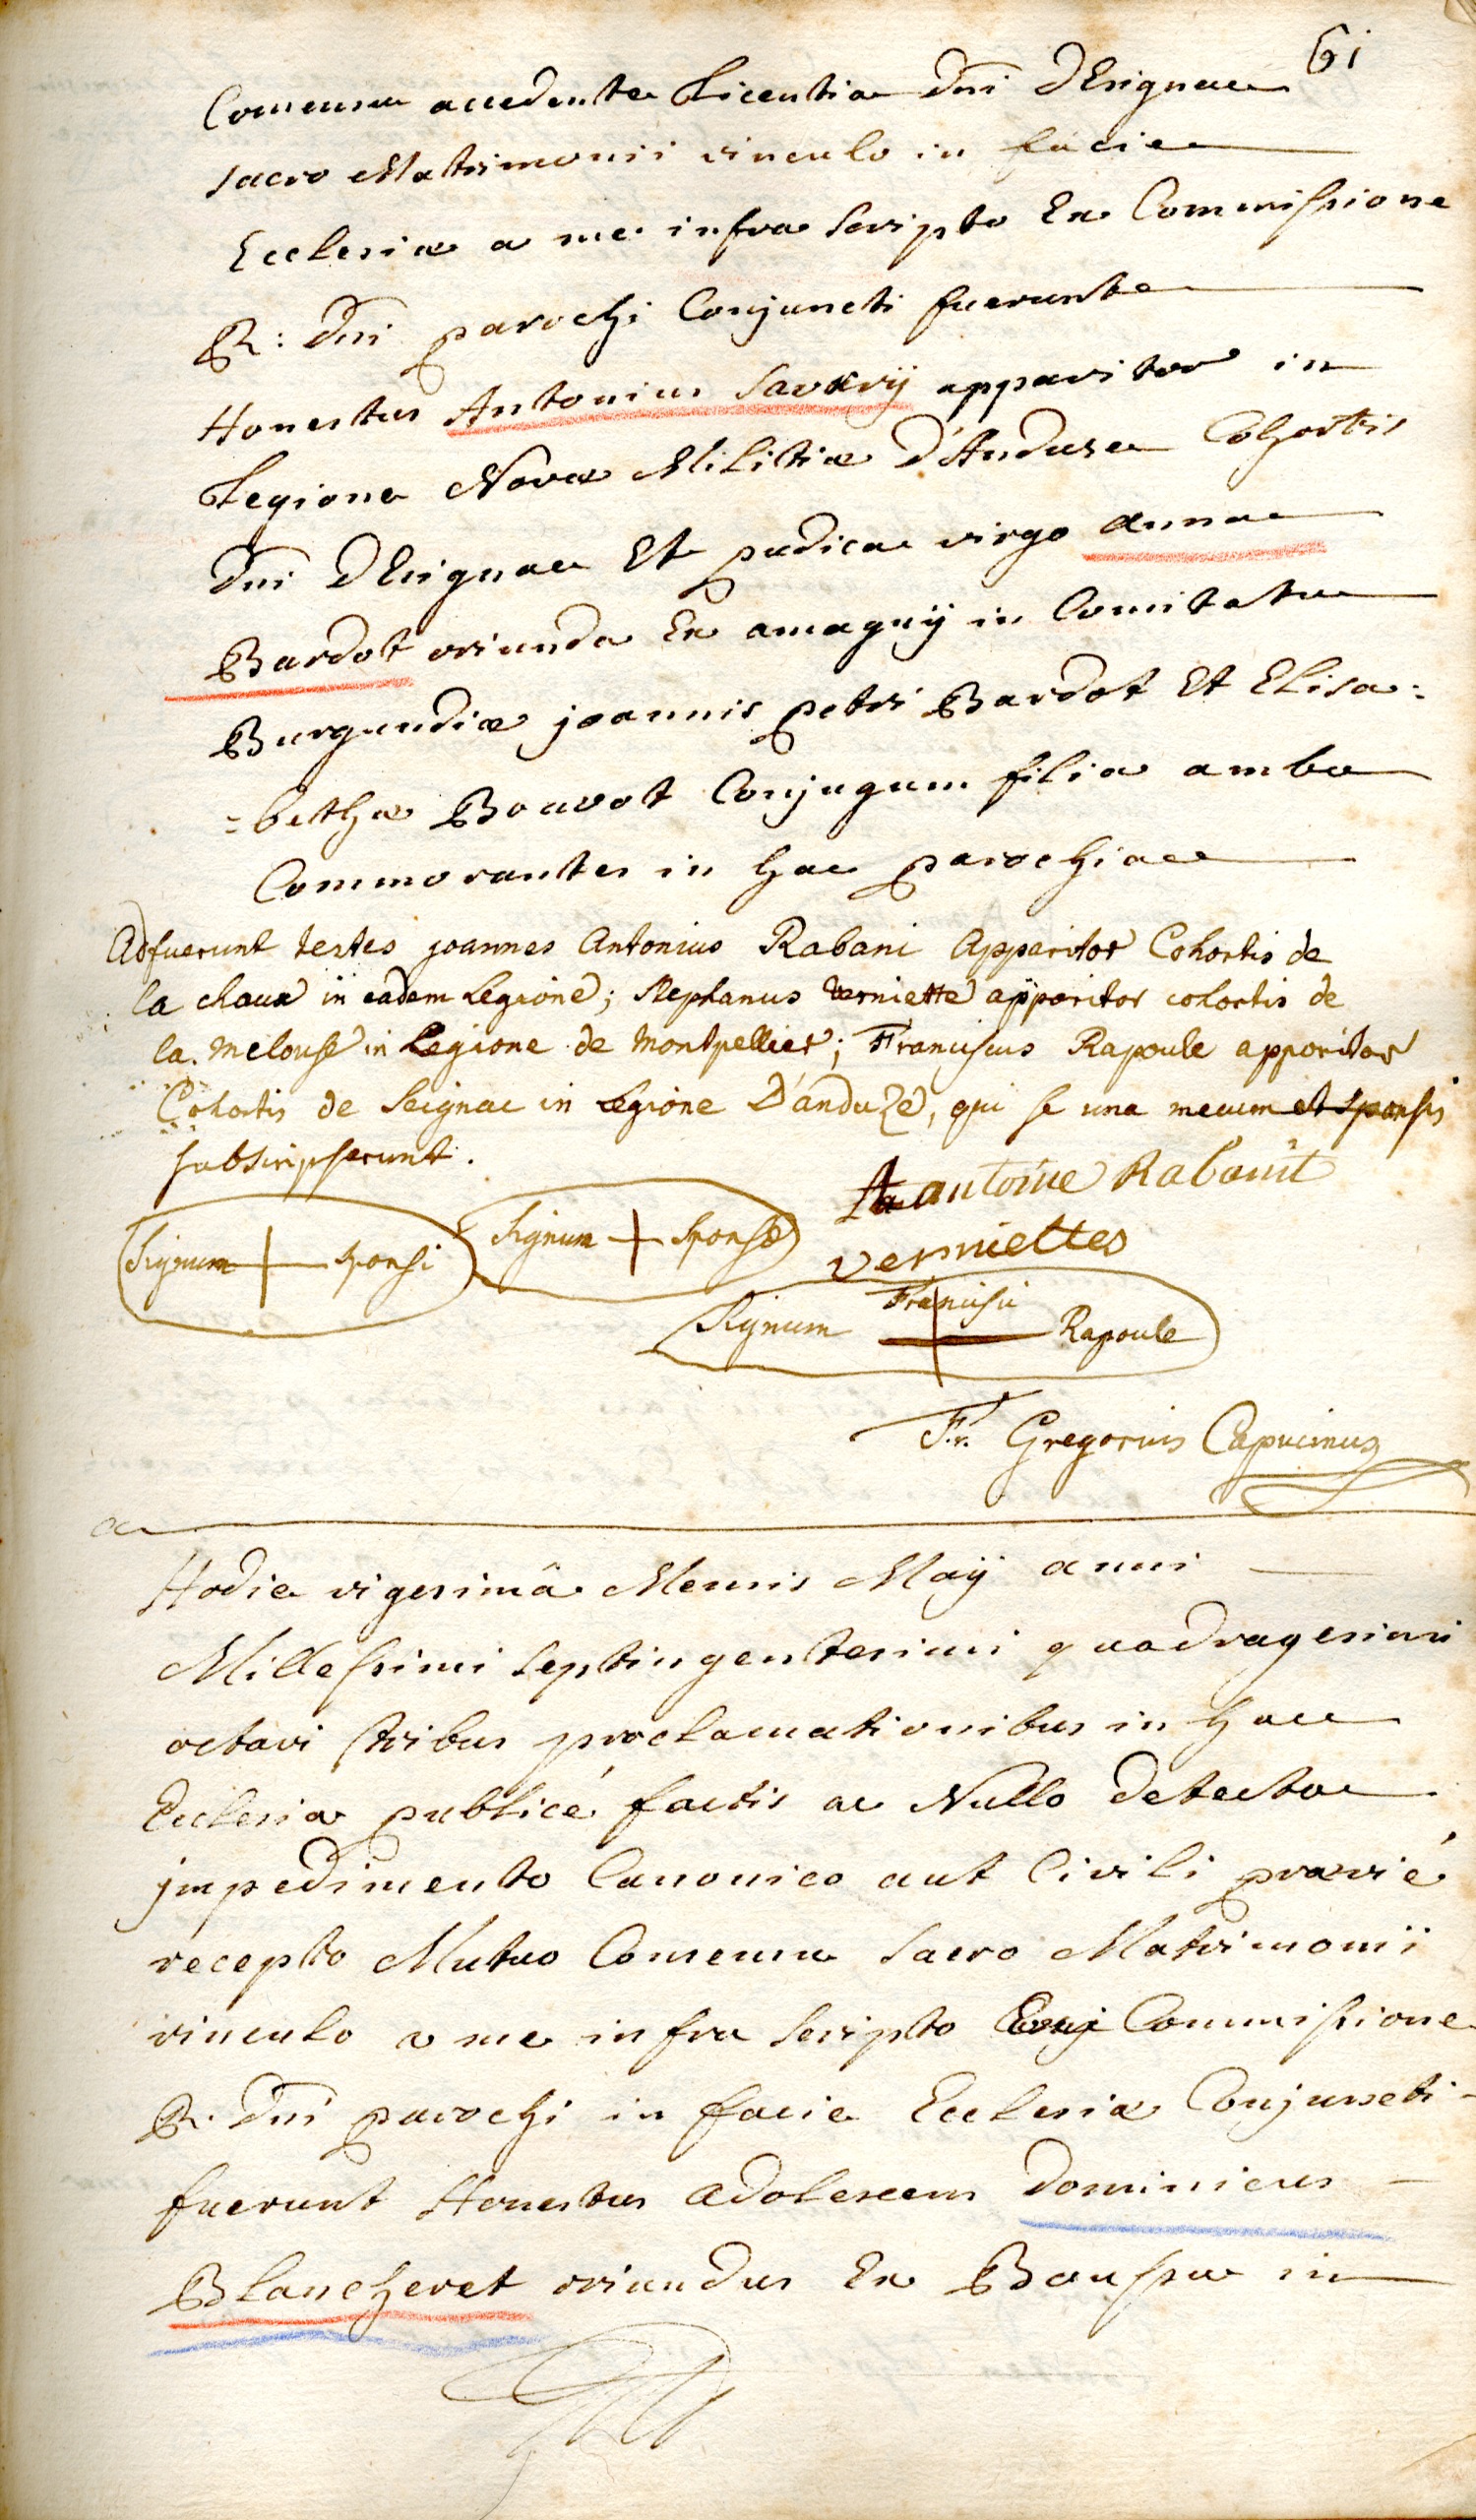 61
Consensu accedente Licentia Dni D'Esignac
sacro Matrimonii vinculo in facie
Ecclesiæ a me infra scripto Ex Commissione
R: Dni parochi Conjuncti fuerunt
Honestus Antonius Savary apparitor in
Legione Novæ Militiæ D'Anduse Cohortis
Dni D'Esignac Et pudica virgo anna
Bardot oriunda Ex amagnÿ in Comitatu
Burgundiæ joannis petri Bardot Et Elisa=
=bethæ Bouvot Conjugum filia ambo
Commorantes in hac parochia
Adfuerunt testes joannes Antonius Rabani Apparitor Cohortis de
la chaux in eadem Legione; Stephanus Verniette apparitor cohortis de
la Melouse in Legione de Montpellier; Franciscus Rapoule apparitor
Cohortis de Seignac in Legione D'anduze, qui se una mecum et sponsis
subscripserunt.
antoine Rabanit
Signum + Sponsi Signum + Sponsæ
verniettes
Signum Francisci + Rapoule
Fr. Gregorius Capucinus
Hodie vigesimâ Mensis Maÿ anni
Millessimi septingentesimi quadragesimi
octavi tribus proclamationibus in hac
Ecclesia publicé factis ac Nullo detecto
impedimento Canonico aut Civili prævié
recepto Mutuo Consensu sacro Matrimonii
vinculo a me infra scripto Commissione
R. Dni parochi in facie Ecclesiæ Conjuncti
fuerunt Honestus adolescens dominicus
Blancheret oriundus Ex Boussu in